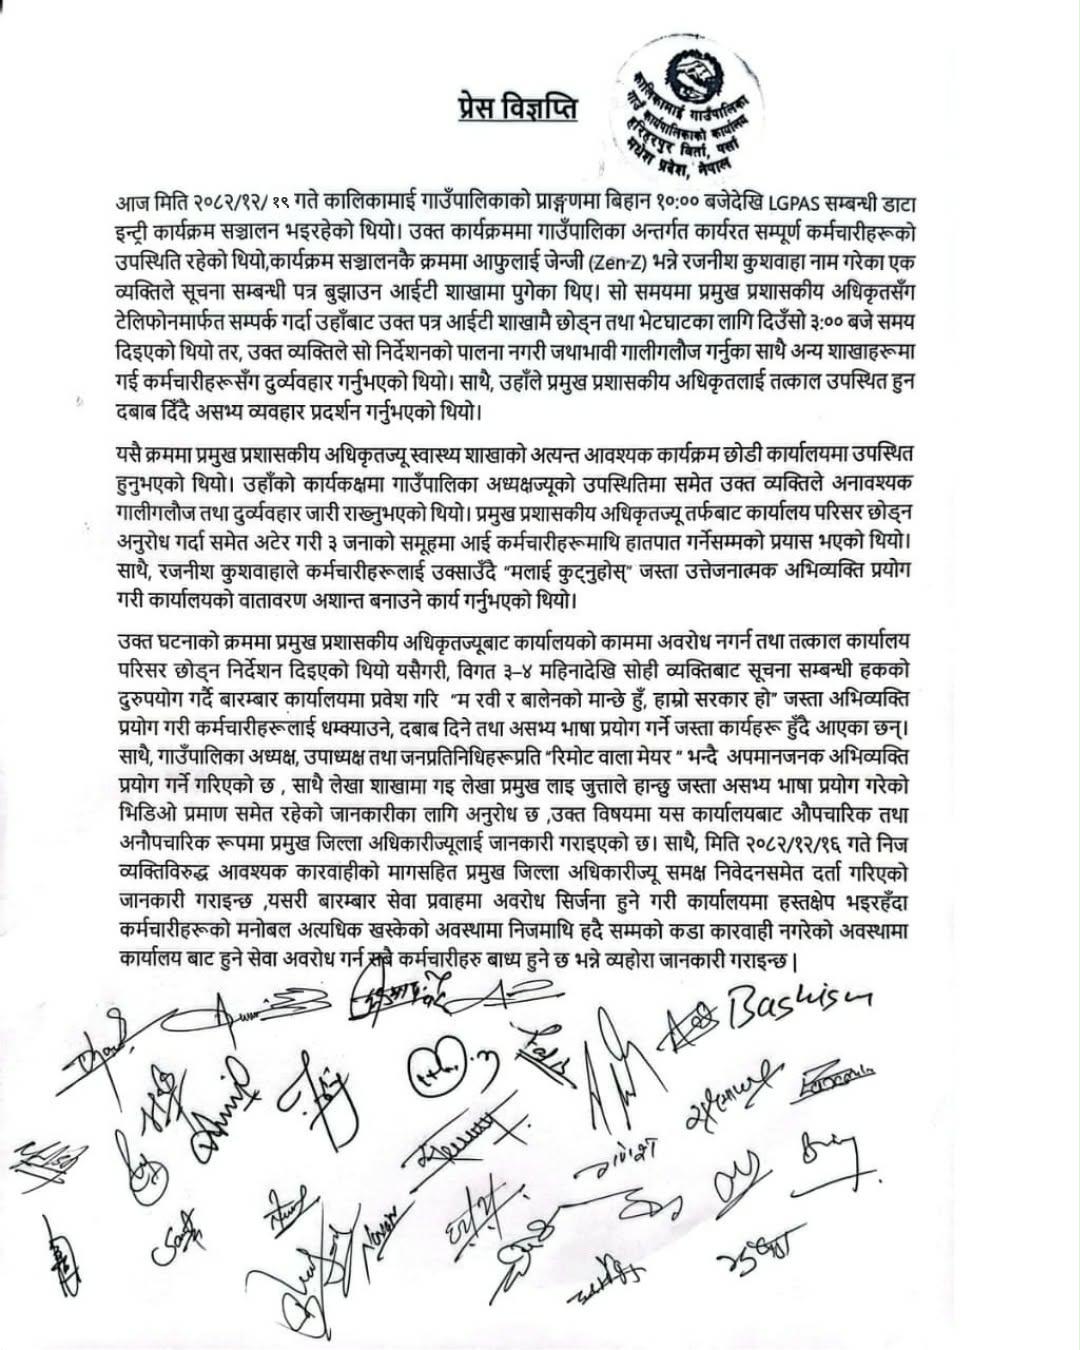 प्रेस विज्ञप्ति
कालिकामाई गाउँपालिका
गाउँ कार्यपालिकाको कार्यालय
हरिहरपुर बिर्ता, पर्सा
मधेश प्रदेश, नेपाल
आज मिति २०८२/१२/१९ गते कालिकामाई गाउँपालिकाको प्राङ्गणमा बिहान १०:०० बजेदेखि LGPAS सम्बन्धी डाटा
इन्ट्री कार्यक्रम सञ्चालन भइरहेको थियो। उक्त कार्यक्रममा गाउँपालिका अन्तर्गत कार्यरत सम्पूर्ण कर्मचारीहरूको
उपस्थिति रहेको थियो,कार्यक्रम सञ्चालनकै क्रममा आफुलाई जेन्जी (Zen-Z) भन्ने रजनीश कुशवाहा नाम गरेका एक
व्यक्तिले सूचना सम्बन्धी पत्र बुझाउन आईटी शाखामा पुगेका थिए। सो समयमा प्रमुख प्रशासकीय अधिकृतसँग
टेलिफोनमार्फत सम्पर्क गर्दा उहाँबाट उक्त पत्र आईटी शाखामै छोड्न तथा भेटघाटका लागि दिउँसो ३:०० बजे समय
दिइएको थियो तर, उक्त व्यक्तिले सो निर्देशनको पालना नगरी जथाभावी गालीगलौज गर्नुका साथै अन्य शाखाहरूमा
गई कर्मचारीहरूसँग दुर्व्यवहार गर्नुभएको थियो। साथै, उहाँले प्रमुख प्रशासकीय अधिकृतलाई तत्काल उपस्थित हुन
दबाब दिँदै असभ्य व्यवहार प्रदर्शन गर्नुभएको थियो।
यसै क्रममा प्रमुख प्रशासकीय अधिकृतज्यू स्वास्थ्य शाखाको अत्यन्त आवश्यक कार्यक्रम छोडी कार्यालयमा उपस्थित
हुनुभएको थियो। उहाँको कार्यकक्षमा गाउँपालिका अध्यक्षज्यूको उपस्थितिमा समेत उक्त व्यक्तिले अनावश्यक
गालीगलौज तथा दुर्व्यवहार जारी राख्नुभएको थियो। प्रमुख प्रशासकीय अधिकृतज्यू तर्फबाट कार्यालय परिसर छोड्न
अनुरोध गर्दा समेत अटेर गरी ३ जनाको समूहमा आई कर्मचारीहरूमाथि हातपात गर्नेसम्मको प्रयास भएको थियो।
साथै, रजनीश कुशवाहाले कर्मचारीहरूलाई उक्साउँदै “मलाई कुट्नुहोस्” जस्ता उत्तेजनात्मक अभिव्यक्ति प्रयोग
गरी कार्यालयको वातावरण अशान्त बनाउने कार्य गर्नुभएको थियो।
उक्त घटनाको क्रममा प्रमुख प्रशासकीय अधिकृतज्यूबाट कार्यालयको काममा अवरोध नगर्न तथा तत्काल कार्यालय
परिसर छोड्न निर्देशन दिइएको थियो यसैगरी, विगत ३–४ महिनादेखि सोही व्यक्तिबाट सूचना सम्बन्धी हकको
दुरुपयोग गर्दै बारम्बार कार्यालयमा प्रवेश गरि “म रवी र बालेनको मान्छे हुँ, हाम्रो सरकार हो” जस्ता अभिव्यक्ति
प्रयोग गरी कर्मचारीहरूलाई धम्क्याउने, दबाब दिने तथा असभ्य भाषा प्रयोग गर्ने जस्ता कार्यहरू हुँदै आएका छन्।
साथै, गाउँपालिका अध्यक्ष, उपाध्यक्ष तथा जनप्रतिनिधिहरूप्रति “रिमोट वाला मेयर ” भन्दै अपमानजनक अभिव्यक्ति
प्रयोग गर्ने गरिएको छ , साथै लेखा शाखामा गइ लेखा प्रमुख लाइ जुत्ताले हान्छु जस्ता असभ्य भाषा प्रयोग गरेको
भिडिओ प्रमाण समेत रहेको जानकारीका लागि अनुरोध छ ,उक्त विषयमा यस कार्यालयबाट औपचारिक तथा
अनौपचारिक रूपमा प्रमुख जिल्ला अधिकारीज्यूलाई जानकारी गराइएको छ। साथै, मिति २०८२/१२/१६ गते निज
व्यक्तिविरुद्ध आवश्यक कारवाहीको मागसहित प्रमुख जिल्ला अधिकारीज्यू समक्ष निवेदनसमेत दर्ता गरिएको
जानकारी गराइन्छ ,यसरी बारम्बार सेवा प्रवाहमा अवरोध सिर्जना हुने गरी कार्यालयमा हस्तक्षेप भइरहँदा
कर्मचारीहरूको मनोबल अत्यधिक खस्केको अवस्थामा निजमाथि हदै सम्मको कडा कारवाही नगरेको अवस्थामा
कार्यालय बाट हुने सेवा अवरोध गर्न सबै कर्मचारीहरु बाध्य हुने छ भन्ने व्यहोरा जानकारी गराइन्छ |
Bashisn